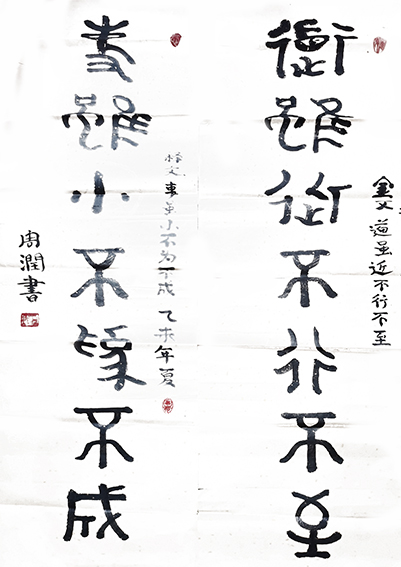 金文 道虽近不行不至
道雖近不行不至
释文 事虽小不为不成 乙未年夏
事雖小不為不成
周潤書